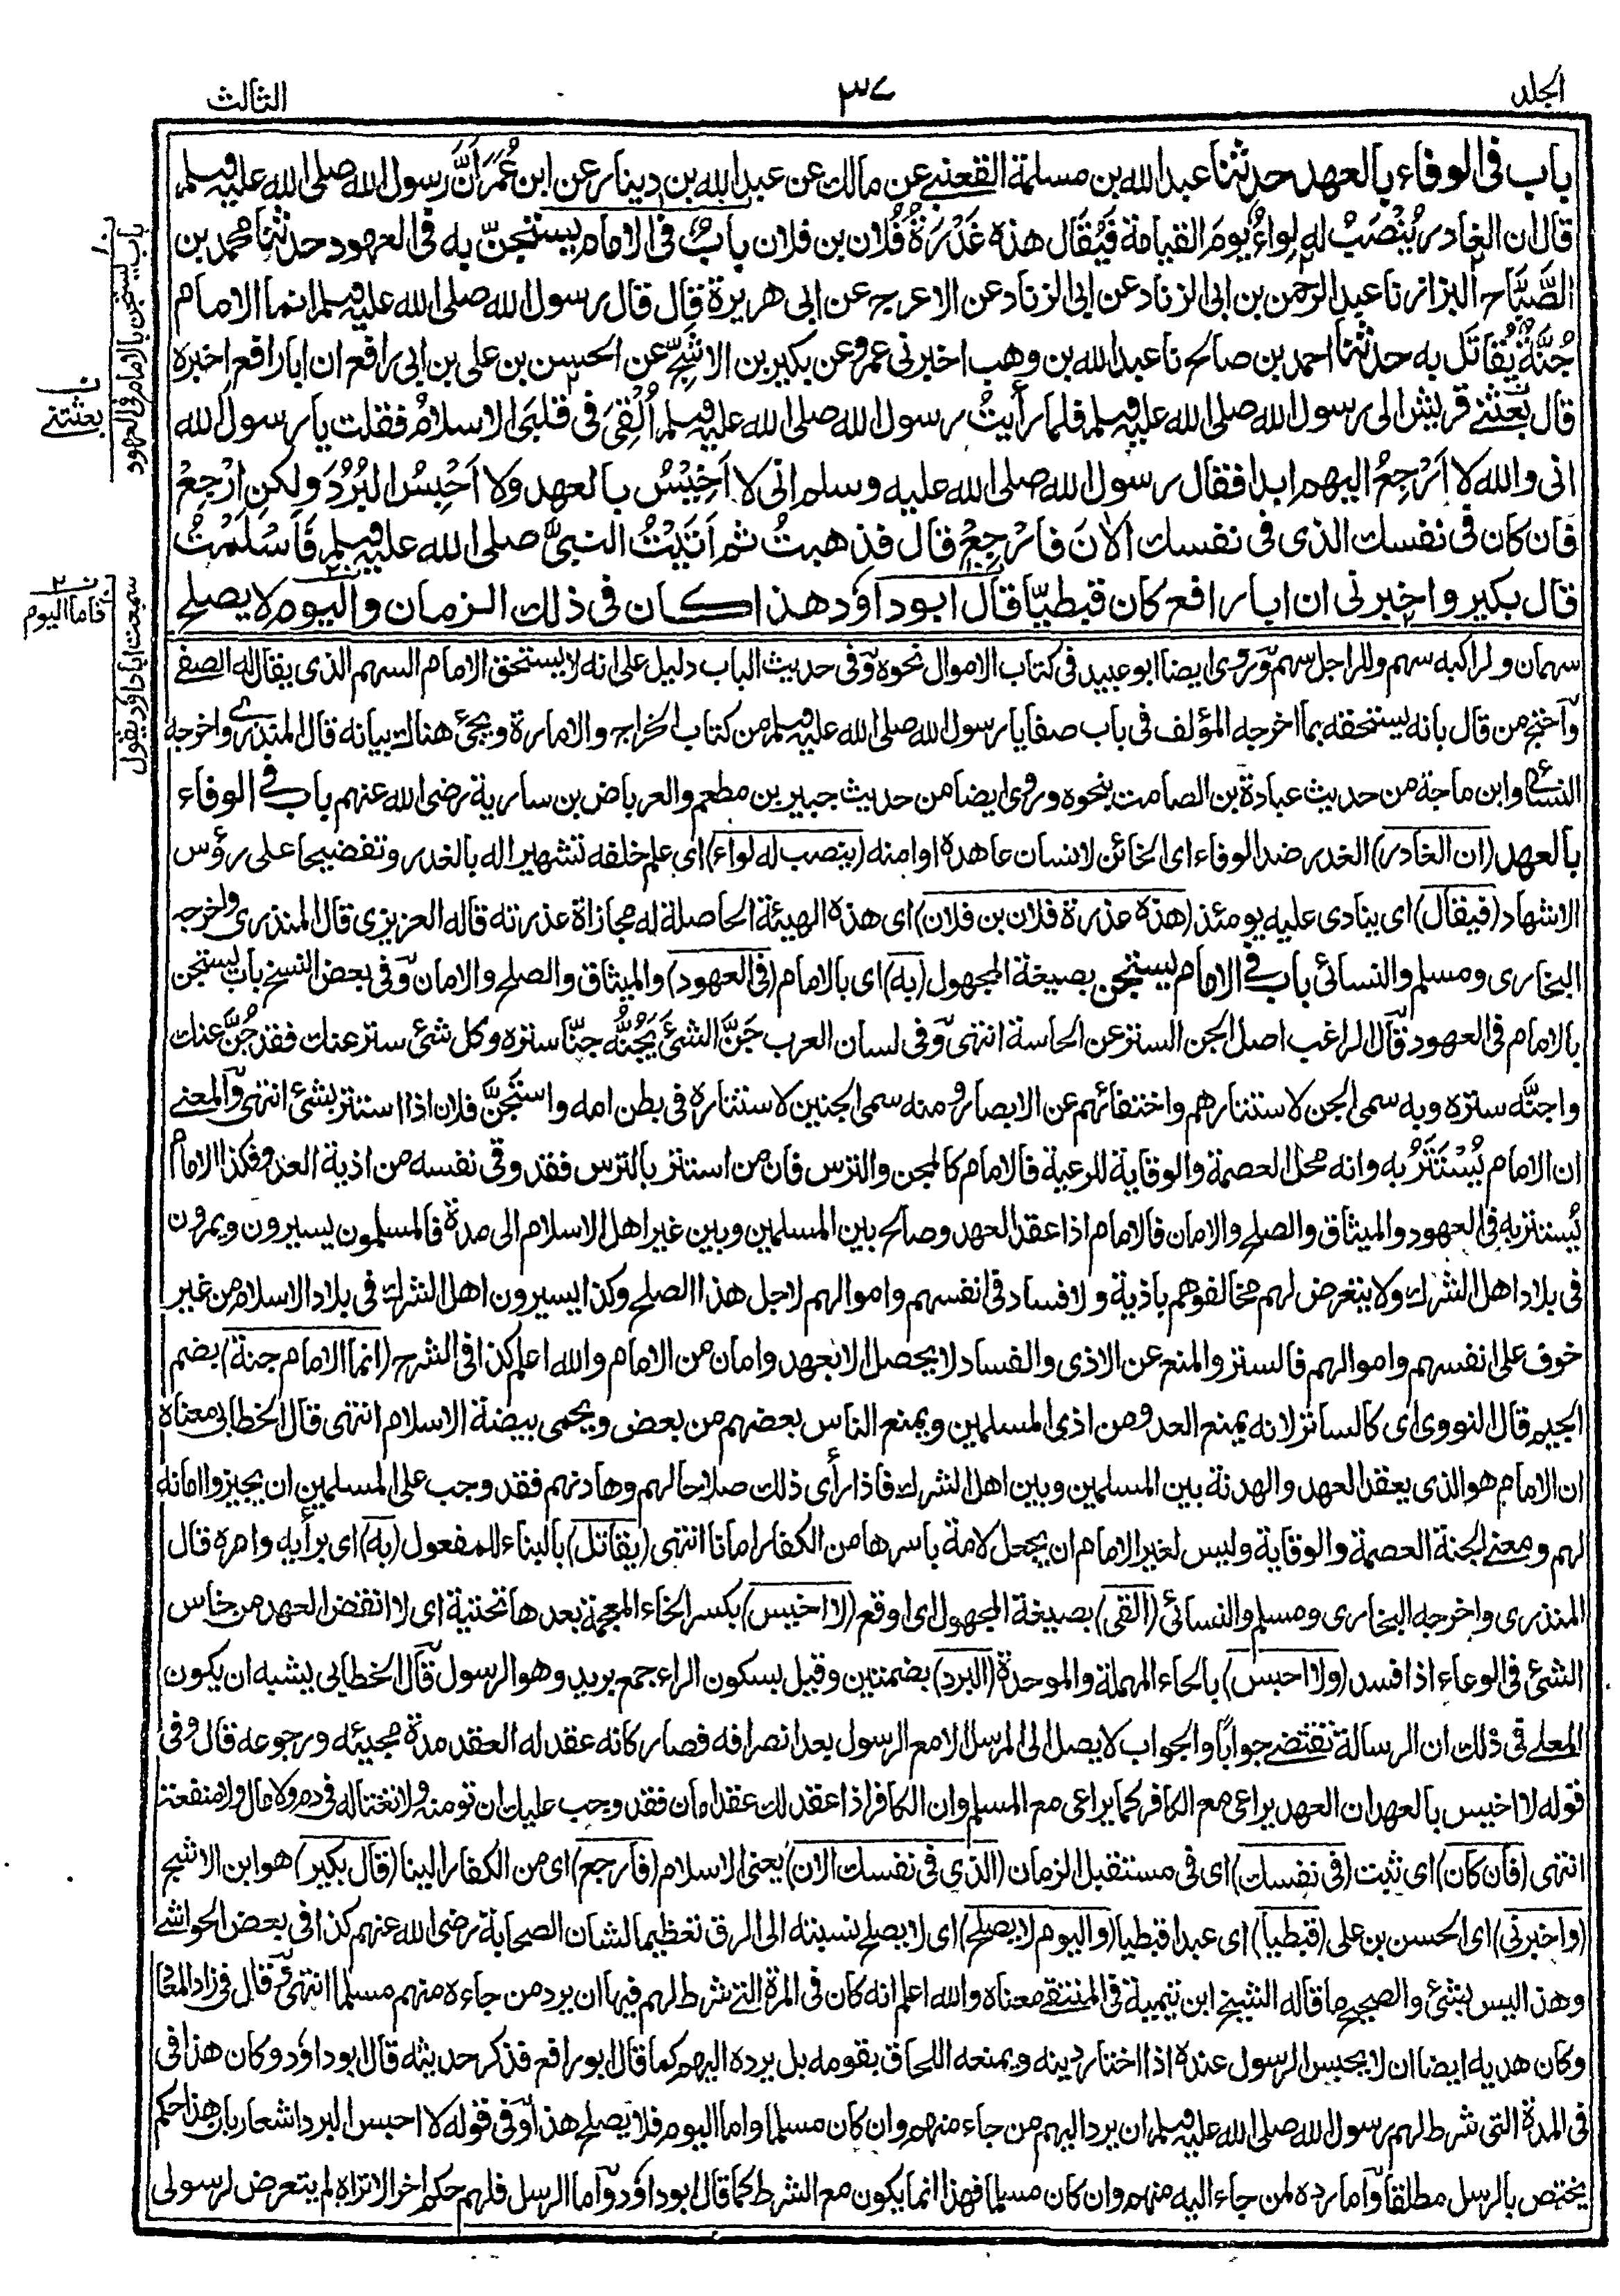 الجلد
٣٧
الثالث
باب فى الوفاء بالعهد حدثنا عبد الله بن مسلمة القعنبى عن مالك عن عبد الله بن دينار عن ابن عُمَرَ اَنَّ رسول الله صلى الله عليه وسلم
قال ان الغادر يُنْصَبُ له لِواءٌ يومَ القيامة فَيُقَال هذه غَدْرَةُ فُلان بن فلان بابٌ فى الامام يستجنّ به فى العهود حدثنا محمد بن
الصَّبَّاح البزاز نا عبد الرحمن بن ابى الزناد عن ابى الزناد عن الاعرج عن ابى هريرة قال قال رسول الله صلى الله عليه وسلم انما الامام
جُنَّةٌ يُقاتَل به حدثنا احمد بن صالح نا عبد الله بن وهب اخبرنى عمرو عن بكير بن الاشجّ عن الحسن بن على بن ابى رافع ان ابا رافع اخبره
قال بَعَثَنى قريش الى رسول الله صلى الله عليه وسلم فلما رأيتُ رسول الله صلى الله عليه وسلم اُلْقِىَ فى قلبىَ الاسلامُ فقلت يا رسول الله
انى والله لا اَرْجِعُ اليهم ابدا فقال رسول الله صلى الله عليه وسلم انى لا اَخِيْسُ بالعهد ولا اَحْبِسُ البُرُدَ ولكن ارْجِعْ
فان كان فى نفسك الذى فى نفسك الاٰنَ فارْجِعْ قال فذهبتُ ثم اَتَيْتُ النبىَّ صلى الله عليه وسلم فَاَسْلَمْتُ
قال بكير واخبرنى ان ابا رافع كان قبطيّا قال ابو داؤد هذا كان فى ذلك الزمان واليوم لا يصلح
باب يستجن بالامام فى العهود
ن
بعثتنى
سمعت ابا داؤد يقول
ن
فاما اليوم
سهمان ولراكبه سهم وللراجل سهم وروى ايضا ابو عبيد فى كتاب الاموال نحوه وفى حديث الباب دليل على انه لا يستحق الامام السهم الذى يقال له الصفى
واحتج من قال بانه يستحقه بما اخرجه المؤلف فى باب صفايا رسول الله صلى الله عليه وسلم من كتاب الخراج والامارة ويجئ هناك بيانه قال المنذرى واخرجه
النسائى وابن ماجة من حديث عبادة بن الصامت بنحوه وروى ايضا من حديث جبير بن مطعم والعرباض بن سارية رضى الله عنهم باب فى الوفاء
بالعهد (ان الغادر) الغدر ضد الوفاء اى الخائن لانسان عاهده او امنه (ينصب له لواء) اى علم خلفه تشهيرا له بالغدر وتفضيحا على رؤس
الاشهاد (فيقال) اى ينادى عليه يومئذ (هذه غدرة فلان بن فلان) اى هذه الهيئة الحاصلة له مجازاة غدرته قاله العزيزى قال المنذرى واخرجه
البخارى ومسلم والنسائى باب فى الامام يستجن بصيغة المجهول (به) اى بالامام (فى العهود) والميثاق والصلح والامان وفى بعض النسخ باب يستجن
بالامام فى العهود قال الراغب اصل الجن الستر عن الحاسة انتهى وفى لسان العرب جَنَّ الشئَ يَجُنُّه جنّا ستره وكل شئ ستر عنك فقد جُنَّ عنك
واجنَّه ستره وبه سمى الجن لاستتارهم واختفائهم عن الابصار ومنه سمى الجنين لاستتاره فى بطن امه واستَجَنَّ فلان اذا استتر بشئ انتهى والمعنى
ان الامام يُسْتَتَرُ به وانه محل العصمة والوقاية للرعية فالامام كالمجن والترس فان من استتر بالترس فقد وقى نفسه من اذية العدو فكذا الامام
يُستتر به فى العهود والميثاق والصلح والامان فالامام اذا عقد العهد وصالح بين المسلمين وبين غير اهل الاسلام الى مدة فالمسلمون يسيرون ويمرون
فى بلاد اهل الشرك ولا يتعرض لهم مخالفوهم باذية ولا فساد فى انفسهم واموالهم لاجل هذا الصلح وكذا يسيرون اهل الشرك فى بلاد الاسلام من غير
خوف على انفسهم واموالهم فالستر والمنع عن الاذى والفساد لا يحصل الا بعهد وامان من الامام والله اعلم كذا فى الشرح (انما الامام جنة) بضم
الجيم قال النووى اى كالساتر لانه يمنع العدو من اذى المسلمين ويمنع الناس بعضهم من بعض ويحمى بيضة الاسلام انتهى قال الخطابى معناه
ان الامام هو الذى يعقد العهد والهدنة بين المسلمين وبين اهل الشرك فاذا رأى ذلك صلاحا لهم وهادنهم فقد وجب على المسلمين ان يجيزوا امانه
لهم ومعنى الجنة العصمة والوقاية وليس لغير الامام ان يجعل لامة باسرها من الكفار امانا انتهى (يقاتل) بالبناء للمفعول (به) اى برأيه وامره قال
المنذرى واخرجه البخارى ومسلم والنسائى (القى) بصيغة المجهول اى اوقع (لا اخيس) بكسر الخاء المعجمة بعدها تحتية اى لا انقض العهد من خاس
الشئ فى الوعاء اذا فسد (ولا احبس) بالحاء المهملة والموحدة (البرد) بضمتين وقيل بسكون الراء جمع بريد وهو الرسول قال الخطابى يشبه ان يكون
المعنى فى ذلك ان الرسالة تقتضى جوابا والجواب لا يصل الى المرسل الا مع الرسول بعد انصرافه فصار كانه عقد له العقد مدة مجيئه ورجوعه قال وفى
قوله لا اخيس بالعهد ان العهد يراعى مع الكافر كما يراعى مع المسلم وان الكافر اذا عقد لك عقد امان فقد وجب عليك ان تومنه ولا تغتاله فى دم ولا مال ولا منفعة
انتهى (فان كان) اى ثبت (فى نفسك) اى فى مستقبل الزمان (الذى فى نفسك الان) يعنى الاسلام (فارجع) اى من الكفار الينا (قال بكير) هو ابن الاشج
(واخبرنى) اى الحسن بن على (قبطيا) اى عبدا قبطيا (واليوم لا يصلح) اى لا يصلح نسبته الى الرق تعظيما لشان الصحابة رضى الله عنهم كذا فى بعض الحواشى
وهذا ليس بشئ والصحيح ما قاله الشيخ ابن تيمية فى المنتقى معناه والله اعلم انه كان فى المرة التى شرط لهم فيها ان يرد من جاءه منهم مسلما انتهى وقال فى زاد المعا
وكان هديه ايضا ان لا يحبس الرسول عنده اذا اختار دينه ويمنعه اللحاق بقومه بل يرده اليهم كما قال ابو رافع فذكر حديثه قال ابو داؤد وكان هذا فى
فى المدة التى شرط لهم رسول الله صلى الله عليه وسلم ان يرد اليهم من جاء منهم وان كان مسلما واما اليوم فلا يصلح هذا وفى قوله لا احبس البرد اشعار بان هذا حكم
يختص بالرسل مطلقا واما رده لمن جاء اليه منهم وان كان مسلما فهذا انما يكون مع الشرط كما قال ابو داؤد واما الرسل فلهم حكم اخر الا تراه لم يتعرض لرسولى